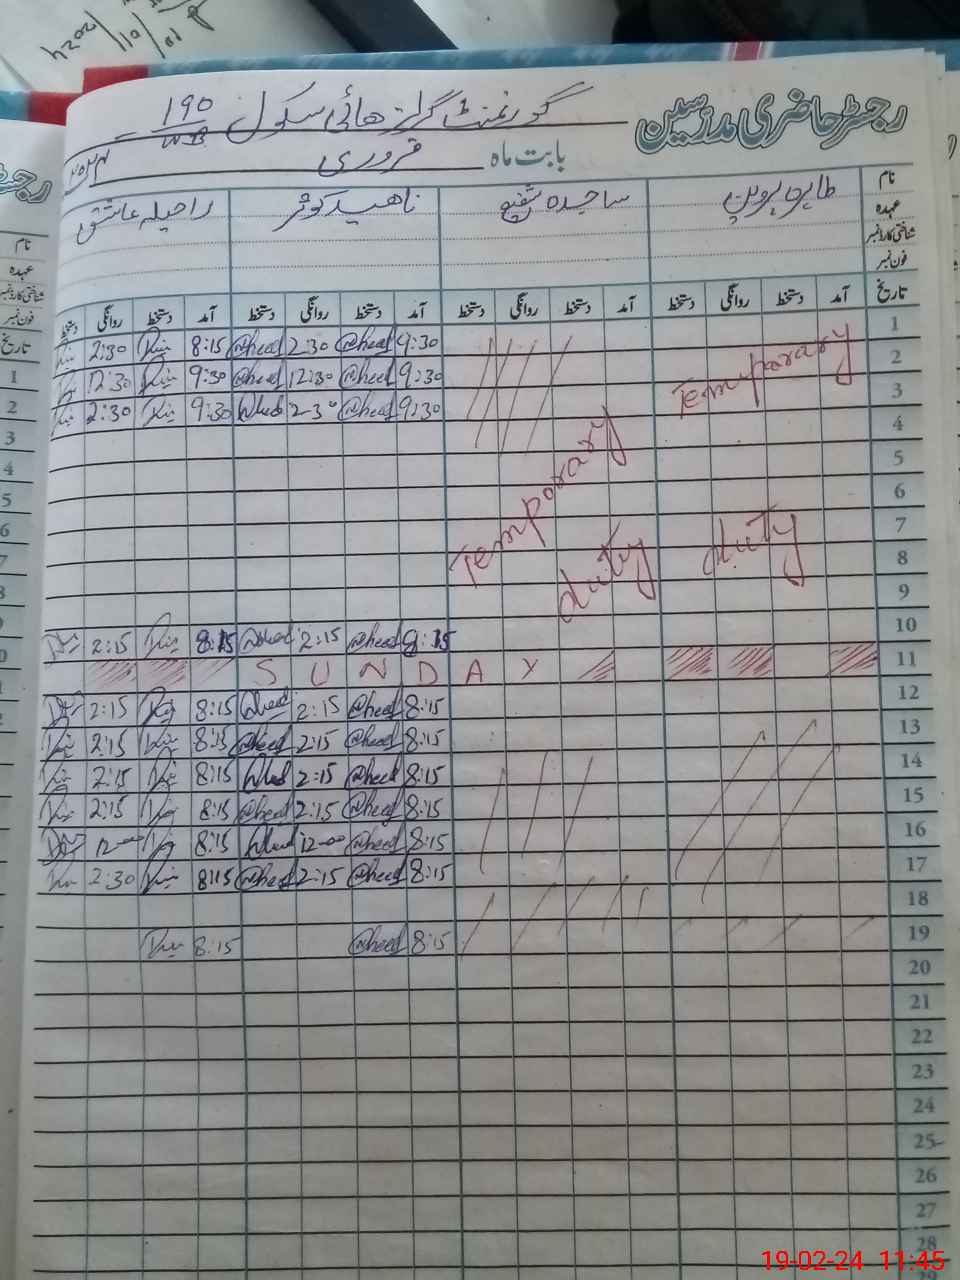 رجسٹر حاضری مدرسین
گورنمنٹ گرلز ھائی سکول 190/WB
بابت ماہ فروری ۲۰۲۴
نام طاہرہ پروین ساجدہ شفیع ناھید کوثر راحیلہ عاشق
عہدہ
شناختی کارڈ نمبر
فون نمبر
تاریخ آمد دستخط روانگی دستخط آمد دستخط روانگی دستخط آمد دستخط روانگی دستخط آمد دستخط روانگی دستخط
1 9:30 2:30 8:15 2:30
2 9:30 12:30 9:30 12:30
3 9:30 2-30 9:30 2:30
4
5
6
7
8
9
Temporary duty
Temporary duty
10 8:15 2:15 8:15 2:15
11 SUNDAY
12 8:15 2:15 8:15 2:15
13 8:15 2:15 8:15 2:15
14 8:15 2:15 8:15 2:15
15 8:15 2:15 8:15 2:15
16 8:15 12-00 8:15 12-00
17 8:15 2:15 8:15 2:30
18
19 8:15 8:15
20
21
22
23
24
25
26
27
28
19-02-24 11:45